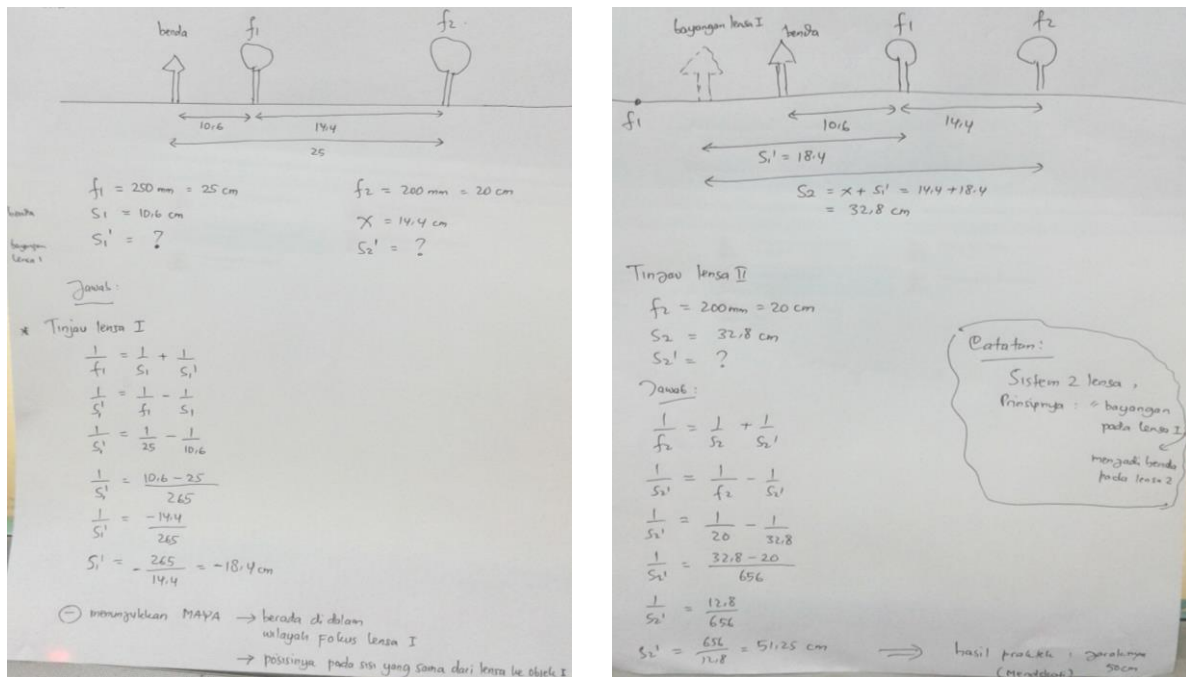 benda
f1
f2
10,6
14,4
25
f1 = 250 mm = 25 cm
S1 = 10,6 cm
S1' = ?
f2 = 200 mm = 20 cm
x = 14,4 cm
S2' = ?
benda
bayangan
lensa 1
Jawab :
* Tinjau lensa I
1/f1 = 1/S1 + 1/S1'
1/S1' = 1/f1 - 1/S1
1/S1' = 1/25 - 1/10,6
1/S1' = 10,6 - 25/265
1/S1' = -14,4/265
S1' = - 265/14,4 = -18,4 cm
(-) menunjukkan MAYA → berada di dalam
wilayah fokus lensa I
→ posisinya pada sisi yang sama dari lensa ke objek I
bayangan lensa I
benda
f1
f2
f1
10,6
14,4
S1' = 18,4
S2 = x + S1' = 14,4 + 18,4
= 32,8 cm
Tinjau lensa II
f2 = 200 mm = 20 cm
S2 = 32,8 cm
S2' = ?
Jawab :
1/f2 = 1/S2 + 1/S2'
1/S2' = 1/f2 - 1/S2'
1/S2' = 1/20 - 1/32,8
1/S2' = 32,8 - 20/656
1/S2' = 12,8/656
S2' = 656/12,8 = 51,25 cm ⟹ hasil praktek : jaraknya
(Mendekati) 50cm
Catatan :
Sistem 2 lensa,
Prinsipnya : " bayangan
pada lensa I
menjadi benda
pada lensa 2